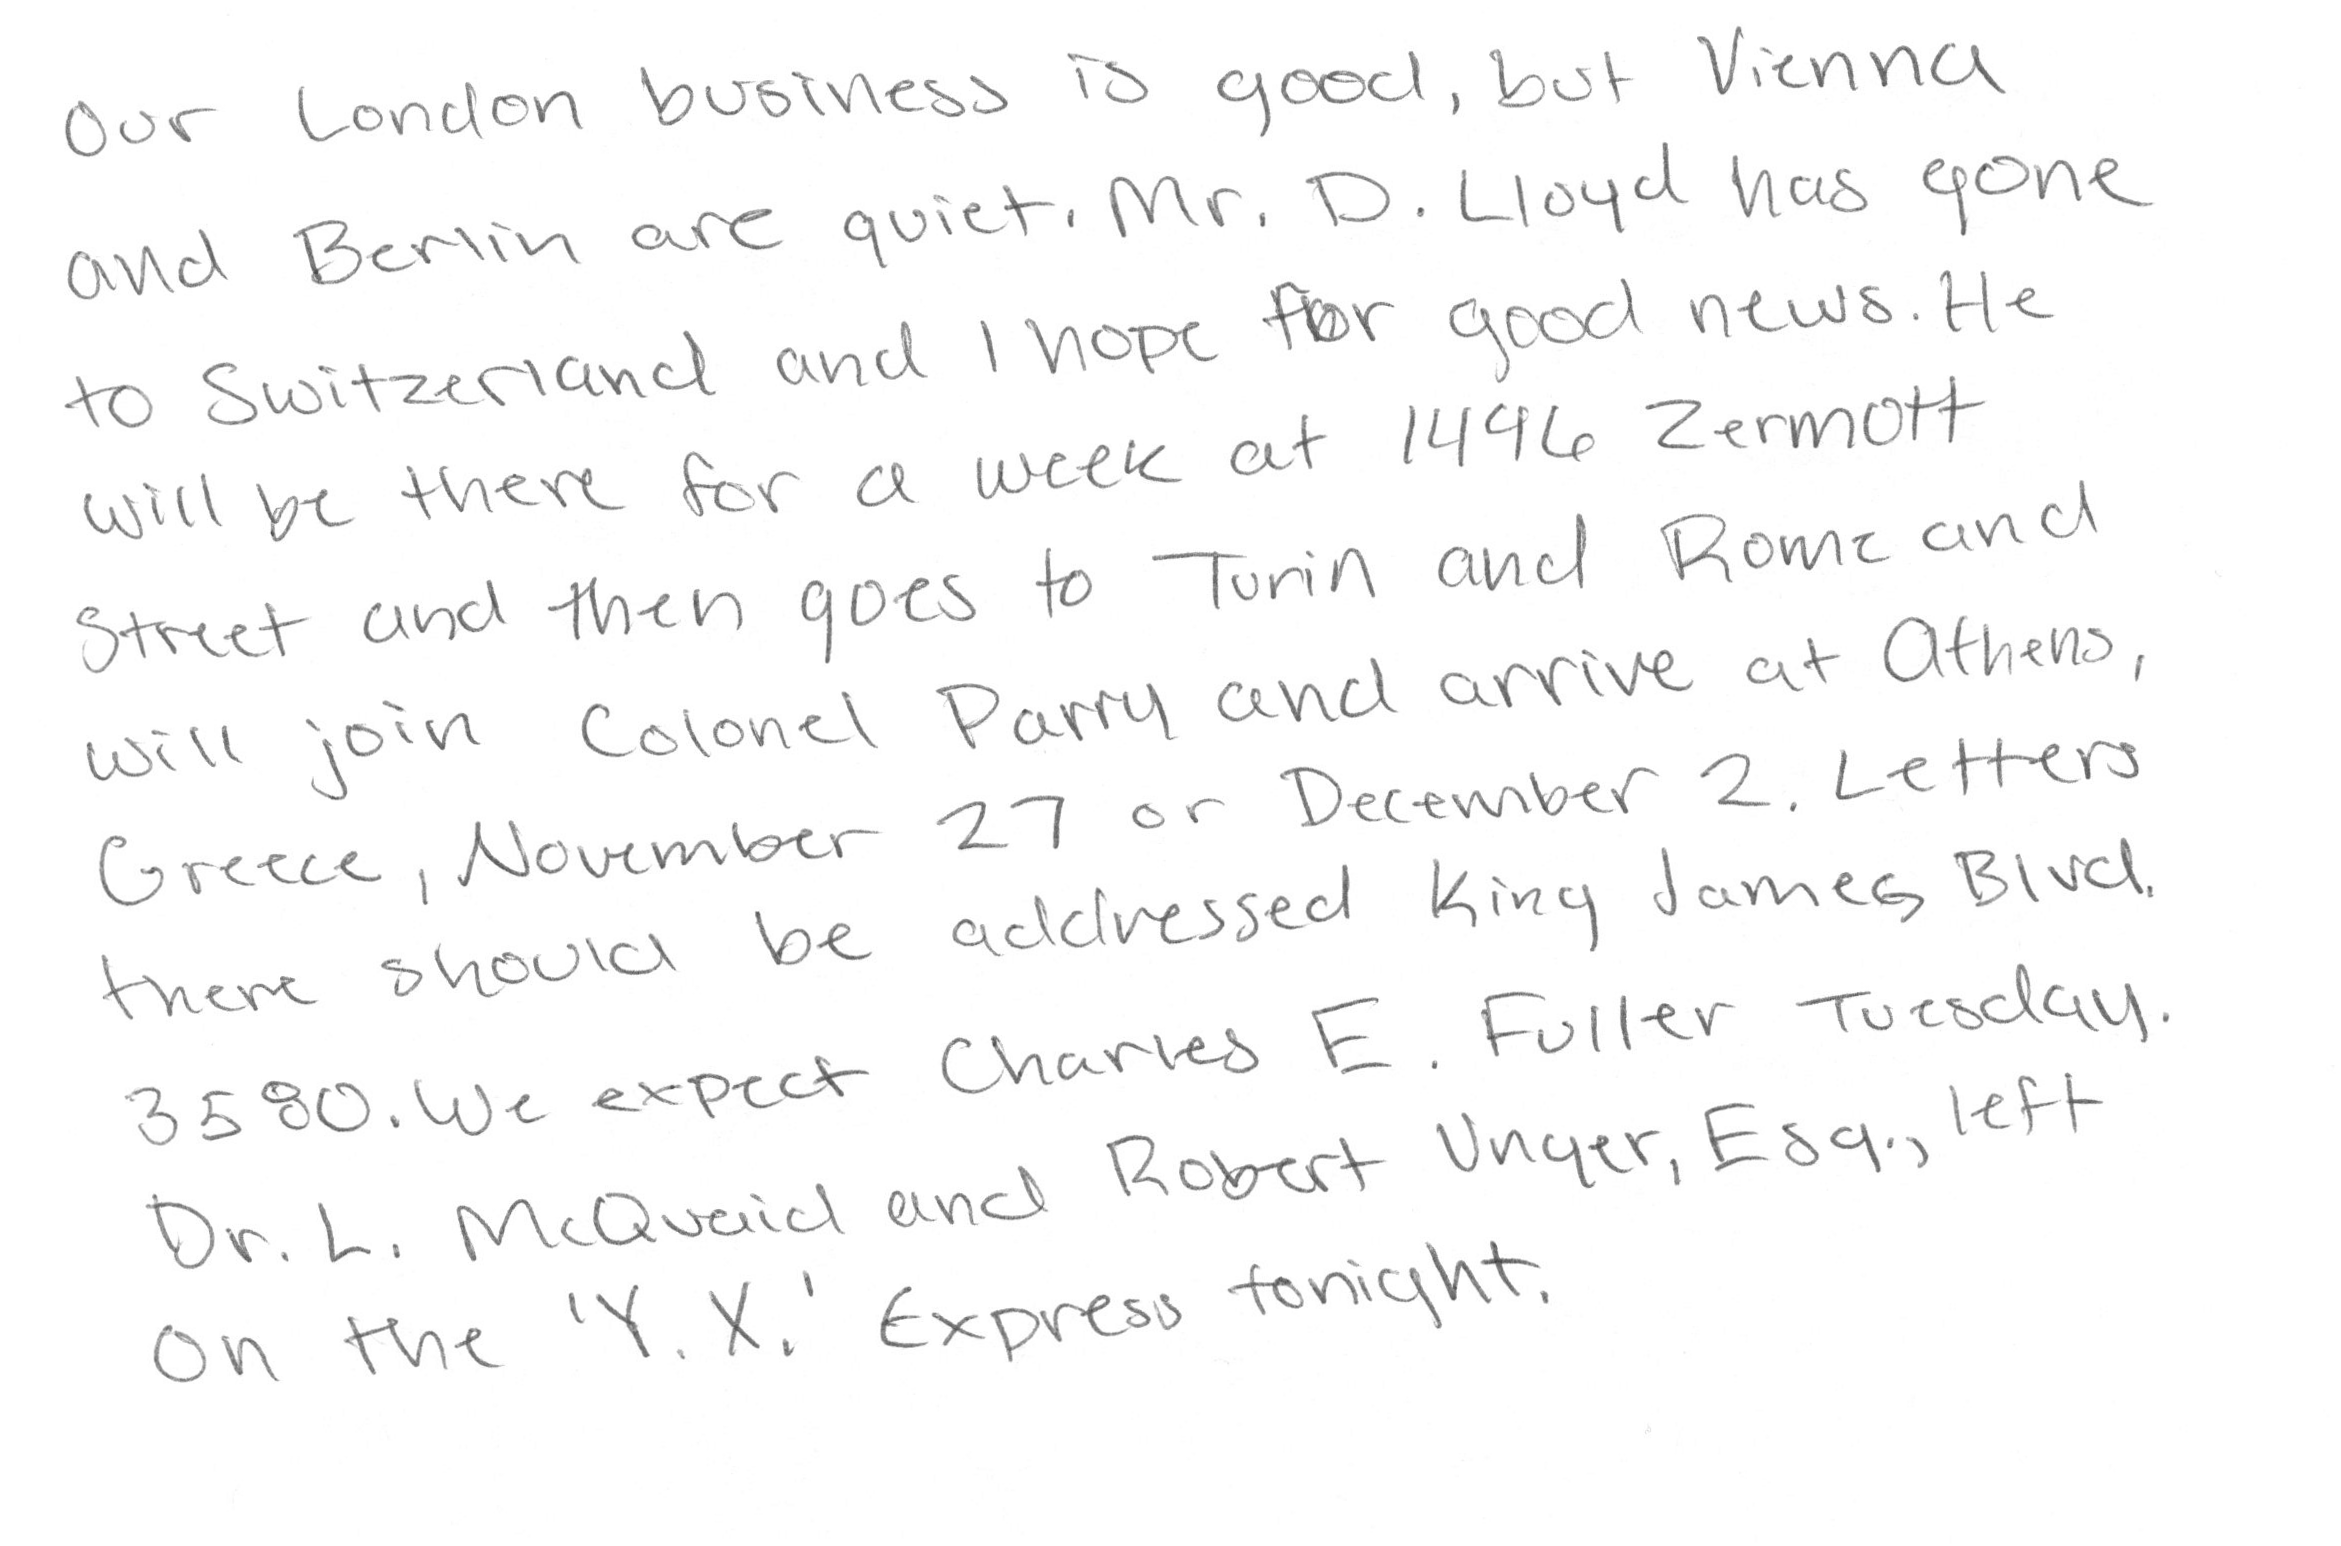 Our London business is good, but Vienna
and Berlin are quiet. Mr. D. Lloyd has gone
to Switzerland and I hope for good news. He
will be there for a week at 1496 Zermott
Street and then goes to Turin and Rome and
will join Colonel Parry and arrive at Athens,
Greece, November 27 or December 2. Letters
there should be addressed King James Blvd.
3580. We expect Charles E. Fuller Tuesday.
Dr. L. McQuaid and Robert Unger, Esq., left
on the 'Y. X.' Express tonight.